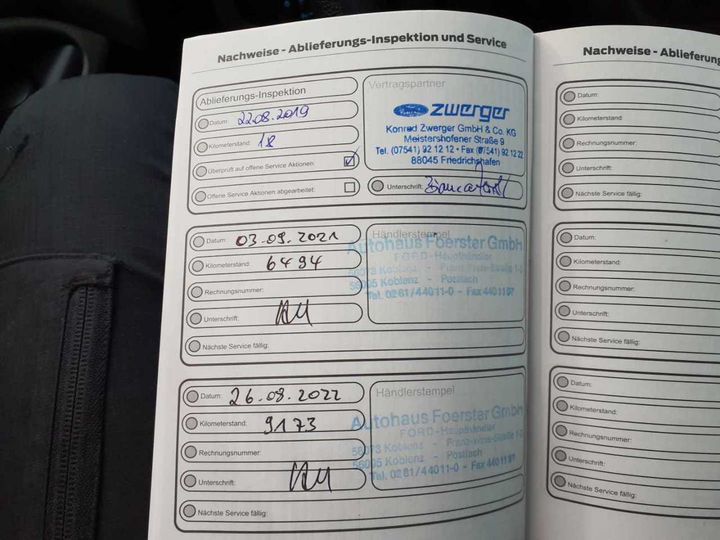 Nachweise - Ablieferungs-Inspektion und Service
Ablieferungs-Inspektion
Datum: 22.08.2019
Kilometerstand: 18
Überprüft auf offene Service Aktionen:
Offene Service Aktionen abgearbeitet:
Vertragspartner
Ford zwerger
Konrad Zwerger GmbH & Co. KG
Meistershofener Straße 9
Tel. (07541) 92 12 12 • Fax (07541) 92 12 22
88045 Friedrichshafen
Unterschrift:
Datum: 03.09.2021
Kilometerstand: 6494
Rechnungsnummer:
Unterschrift:
Nächste Service fällig:
Händlerstempel
Autohaus Foerster GmbH
FORD-Haupthändler
56073 Koblenz -
56005 Koblenz - Postfach
Tel. 0261/44011-0 - Fax 4401197
Datum: 26.08.2022
Kilometerstand: 9173
Rechnungsnummer:
Unterschrift:
Nächste Service fällig:
Händlerstempel
Autohaus Foerster GmbH
FORD-Haupthändler
56073 Koblenz -
56005 Koblenz - Postfach
Tel. 0261/44011-0 - Fax 4401197
Nachweise - Ablieferung
Datum:
Kilometerstand
Rechnungsnummer:
Unterschrift:
Nächste Service fällig:
Datum:
Kilometerstand:
Rechnungsnummer:
Unterschrift:
Nächste Service fällig:
Datum:
Kilometerstand:
Rechnungsnummer:
Unterschrift:
Nächste Service fällig: